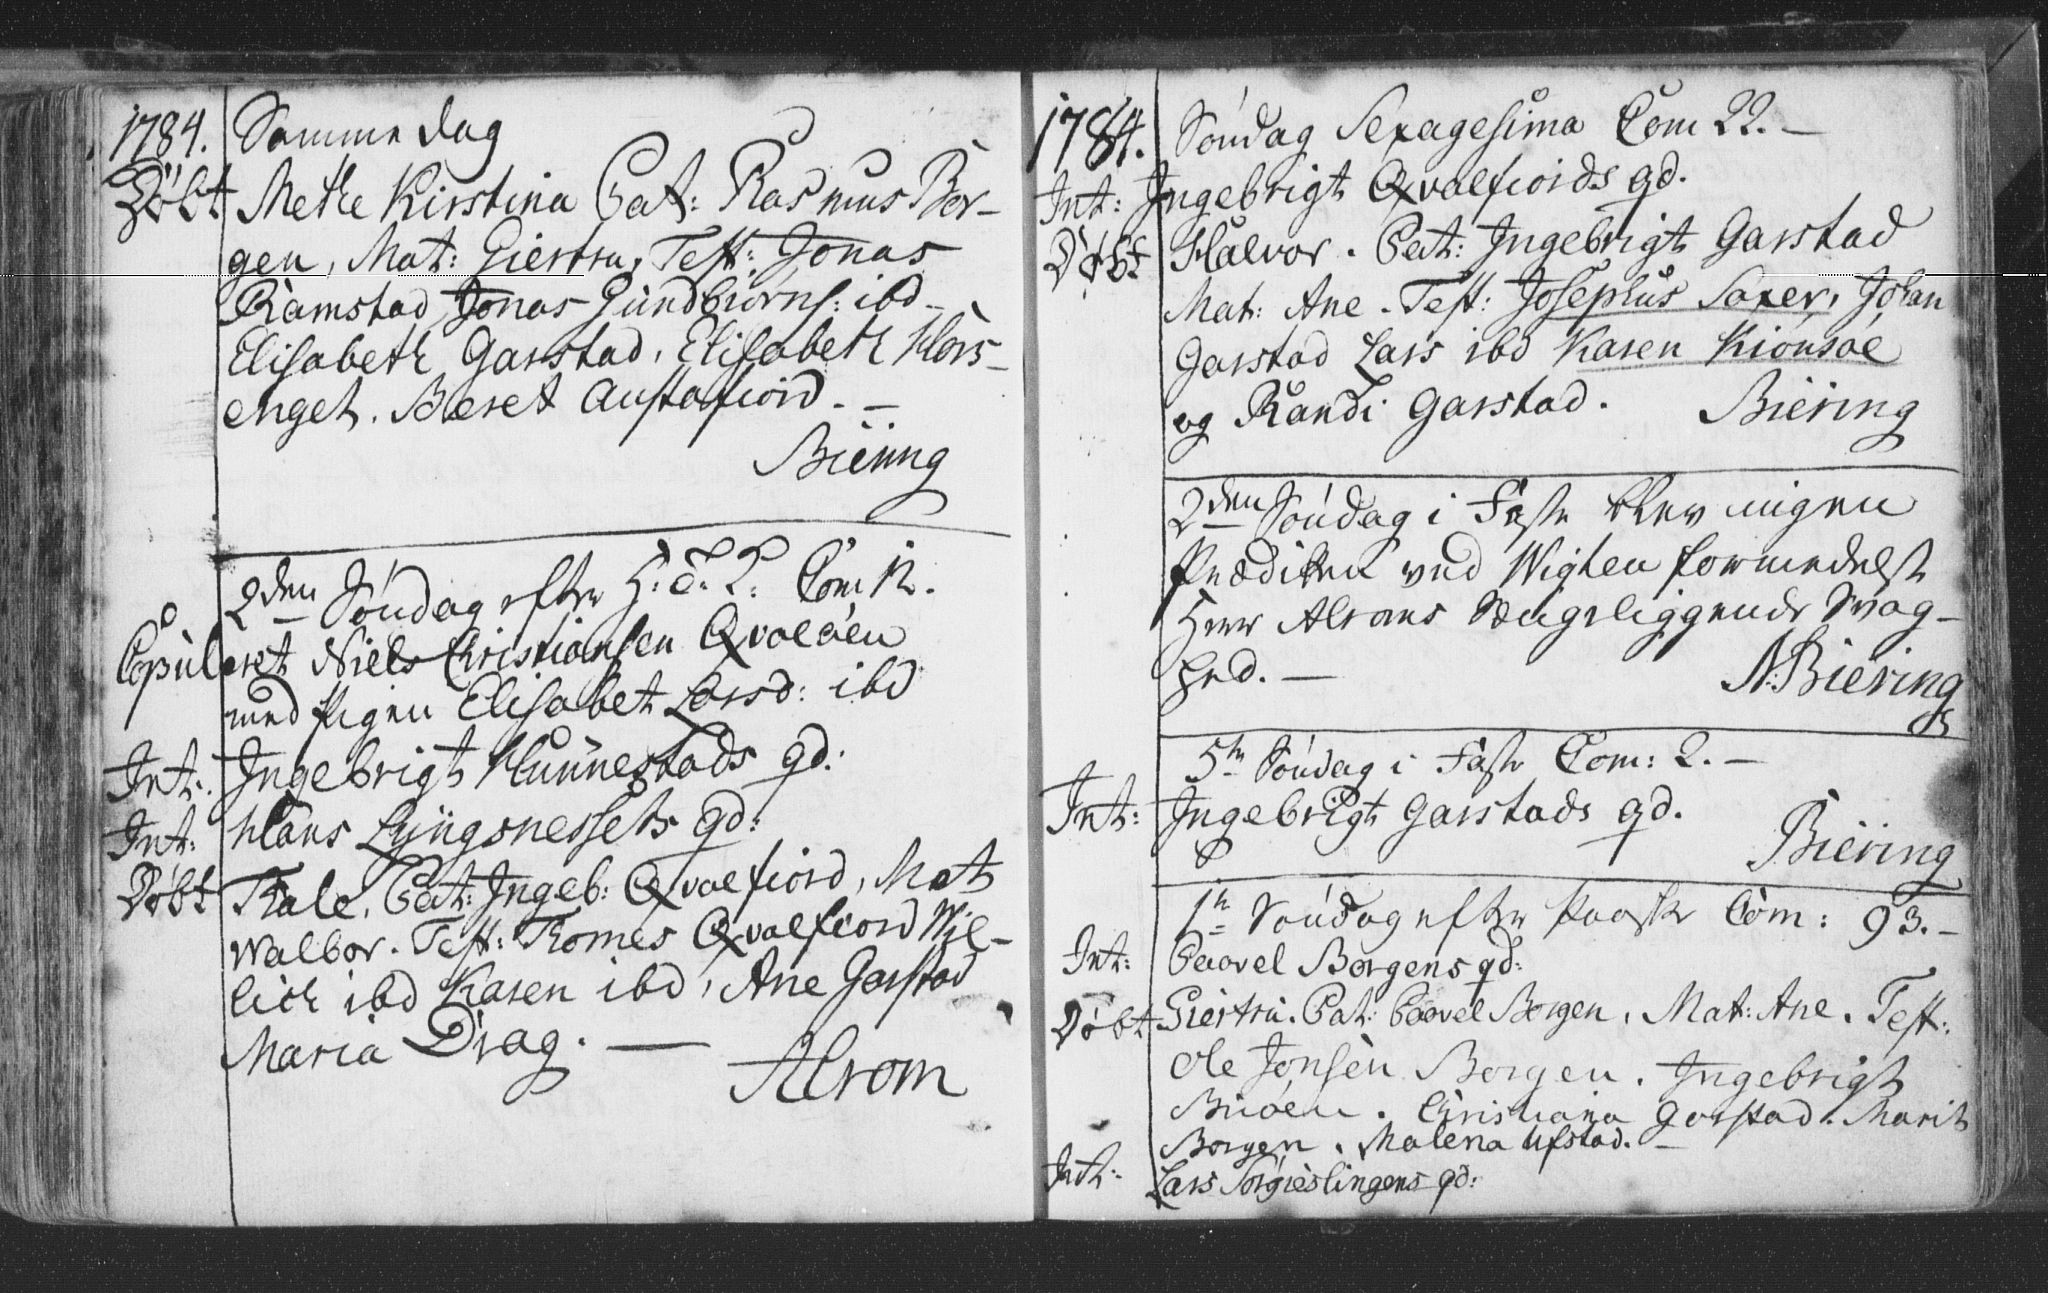 1784. Samme Dag
Döbt Methe Kirstina Pat: Rasmus Bor-
gen, Mat: Giertru, Test: Jonas
Ramstad Jonas Gundbiørns: ibd-
Elisabeth Garstad, Elisabeth Hors-
enget. Beret Austafiord. –
Biering
2den Søndag efter H: 3. K: Com 12.
Copuleret Niels Christiansen Qvaløen
med Pigen Elisabet Larsd: ibd
Int: Ingebrigt Hunnestads qd:
Int: Hans Lyngsnessets qd:
Döbt Kale, Pat: Ingeb: Qvalfiord, Mat
Walbor. Test: Thomes Qvalfiord Wil-
lich ibd Karen ibd, Ane Garstad
Maria Drag. —
Alrom
1784. Søndag Sexagesima Com 22. –
Int: Ingebrigt Qvalfiords qd.
Døbt Halvor. Pat: Ingebrigt Garstad
Mat: Ane. Test: Josephus Saxer, Johan
Garstad Lars ibd Karen Kiønsøe
og Randi Garstad. Biering
2den Søndag i Faste blev ingen
Prædiken ved Wigten formedelst
Herr Alroms Sængeliggende Svag-
hed. — N: Biering
5te Søndag i Faste Com: 2. –
Int: Ingebrigt Garstads qd.
Biering
1te Søndag efter Paaske Com: 93. –
Int: Paavel Borgens qd:
Døbt Giertru. Pat: Paavel Borgen, Mat: Ane. Test:
Ole Jonsen Borgen. Ingebrigt
Buøen. Christiana Garstad. Marit
Borgen. Malena Ufstad. –
Int: Lars Sørgieslingens qd: